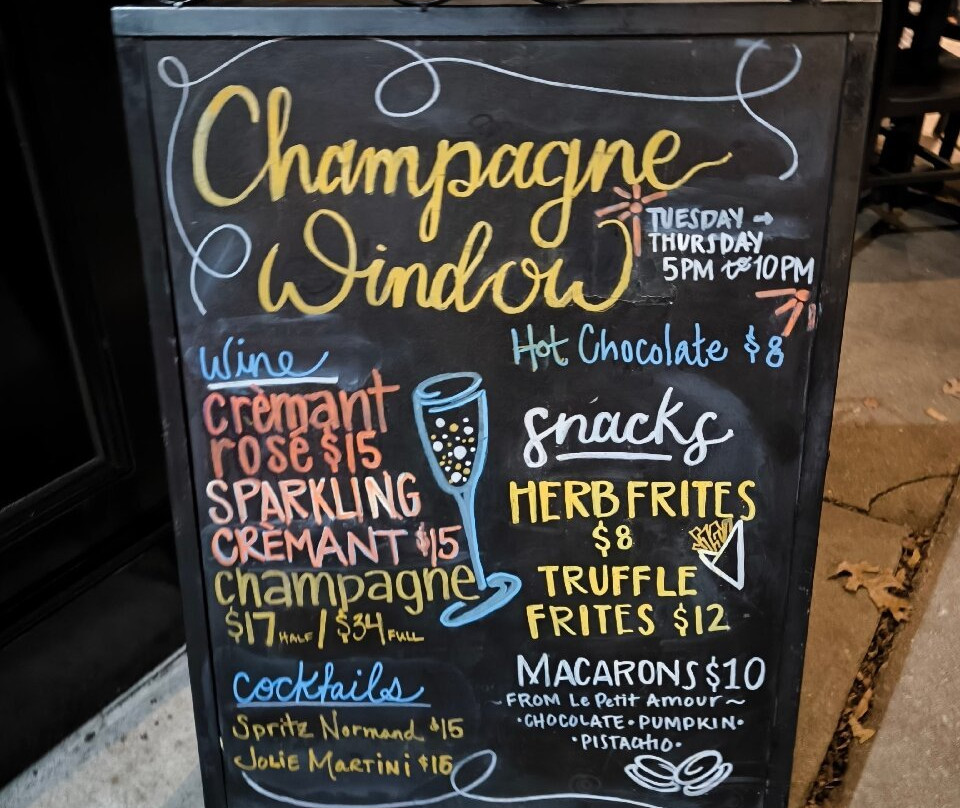 Champagne
Window
TUESDAY →
THURSDAY
5PM to 10PM
Wine
crèmant
rosé $15
SPARKLING
CRÈMANT $15
champagne
$17 HALF / $34 FULL
cocktails
Spritz Normand $15
JOLIE MARTINI $15
Hot Chocolate $8
snacks
HERB FRITES
$8
TRUFFLE
FRITES $12
MACARONS $10
~FROM Le Petit Amour~
•CHOCOLATE•PUMPKIN•
•PISTACHIO•